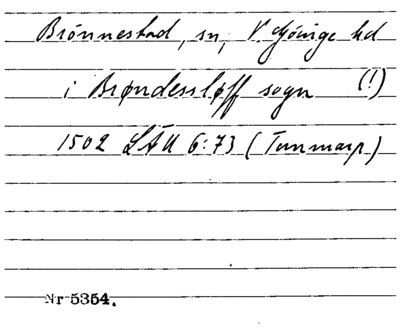 Brönnestad, sn, V. Göinge hd
i Brøndessløff sogn (!)
1502 LÄU 6:73 (Tunmarp)
Nr 5354.